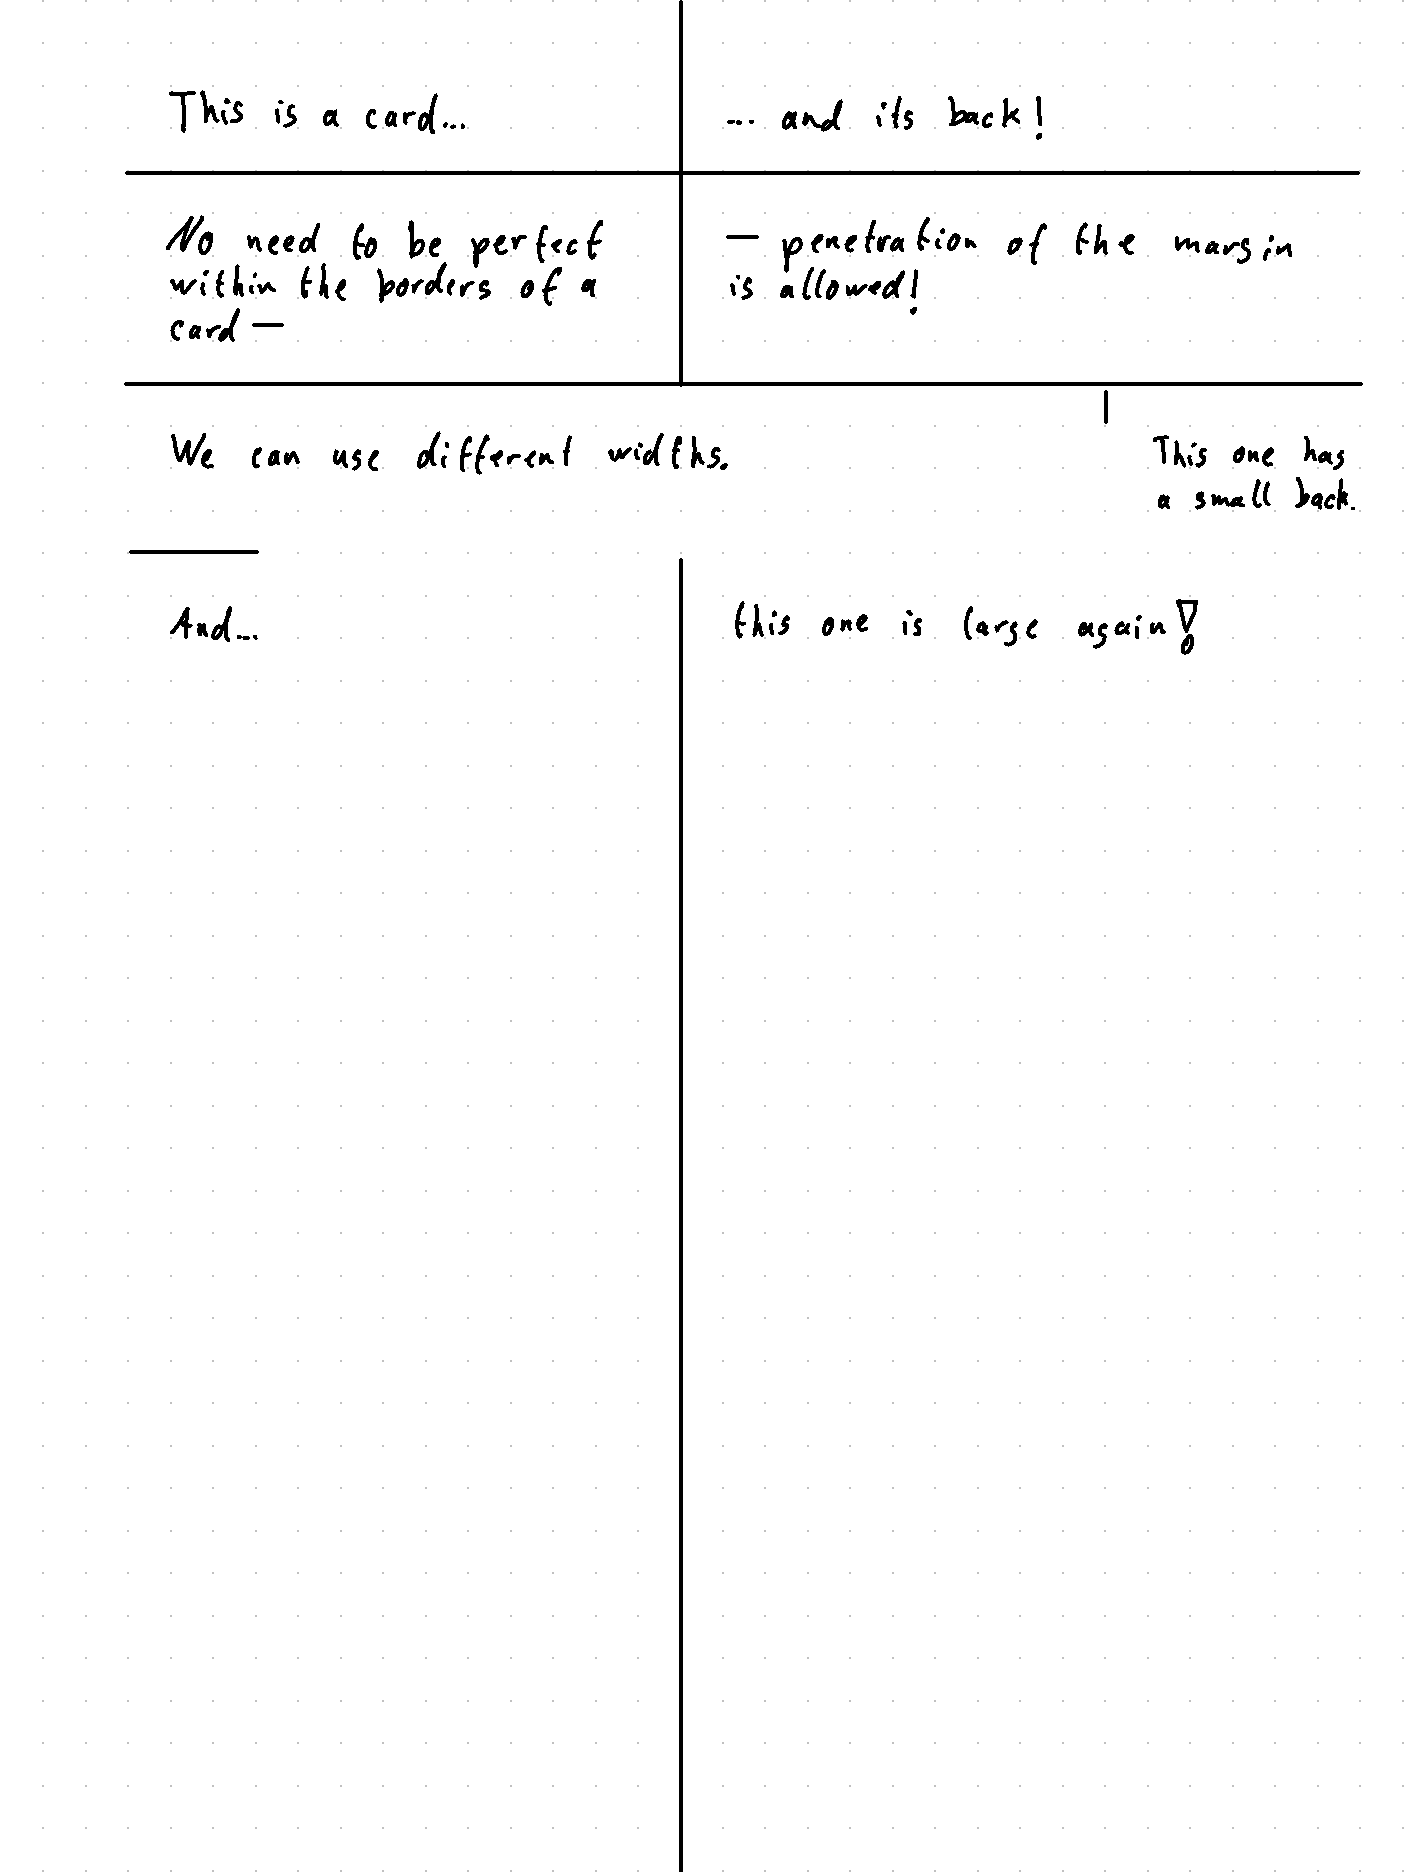 This is a card...
... and its back!
No need to be perfect
within the borders of a
card —
— penetration of the margin
is allowed!
We can use different widths.
This one has
a small back.
And...
this one is large again!